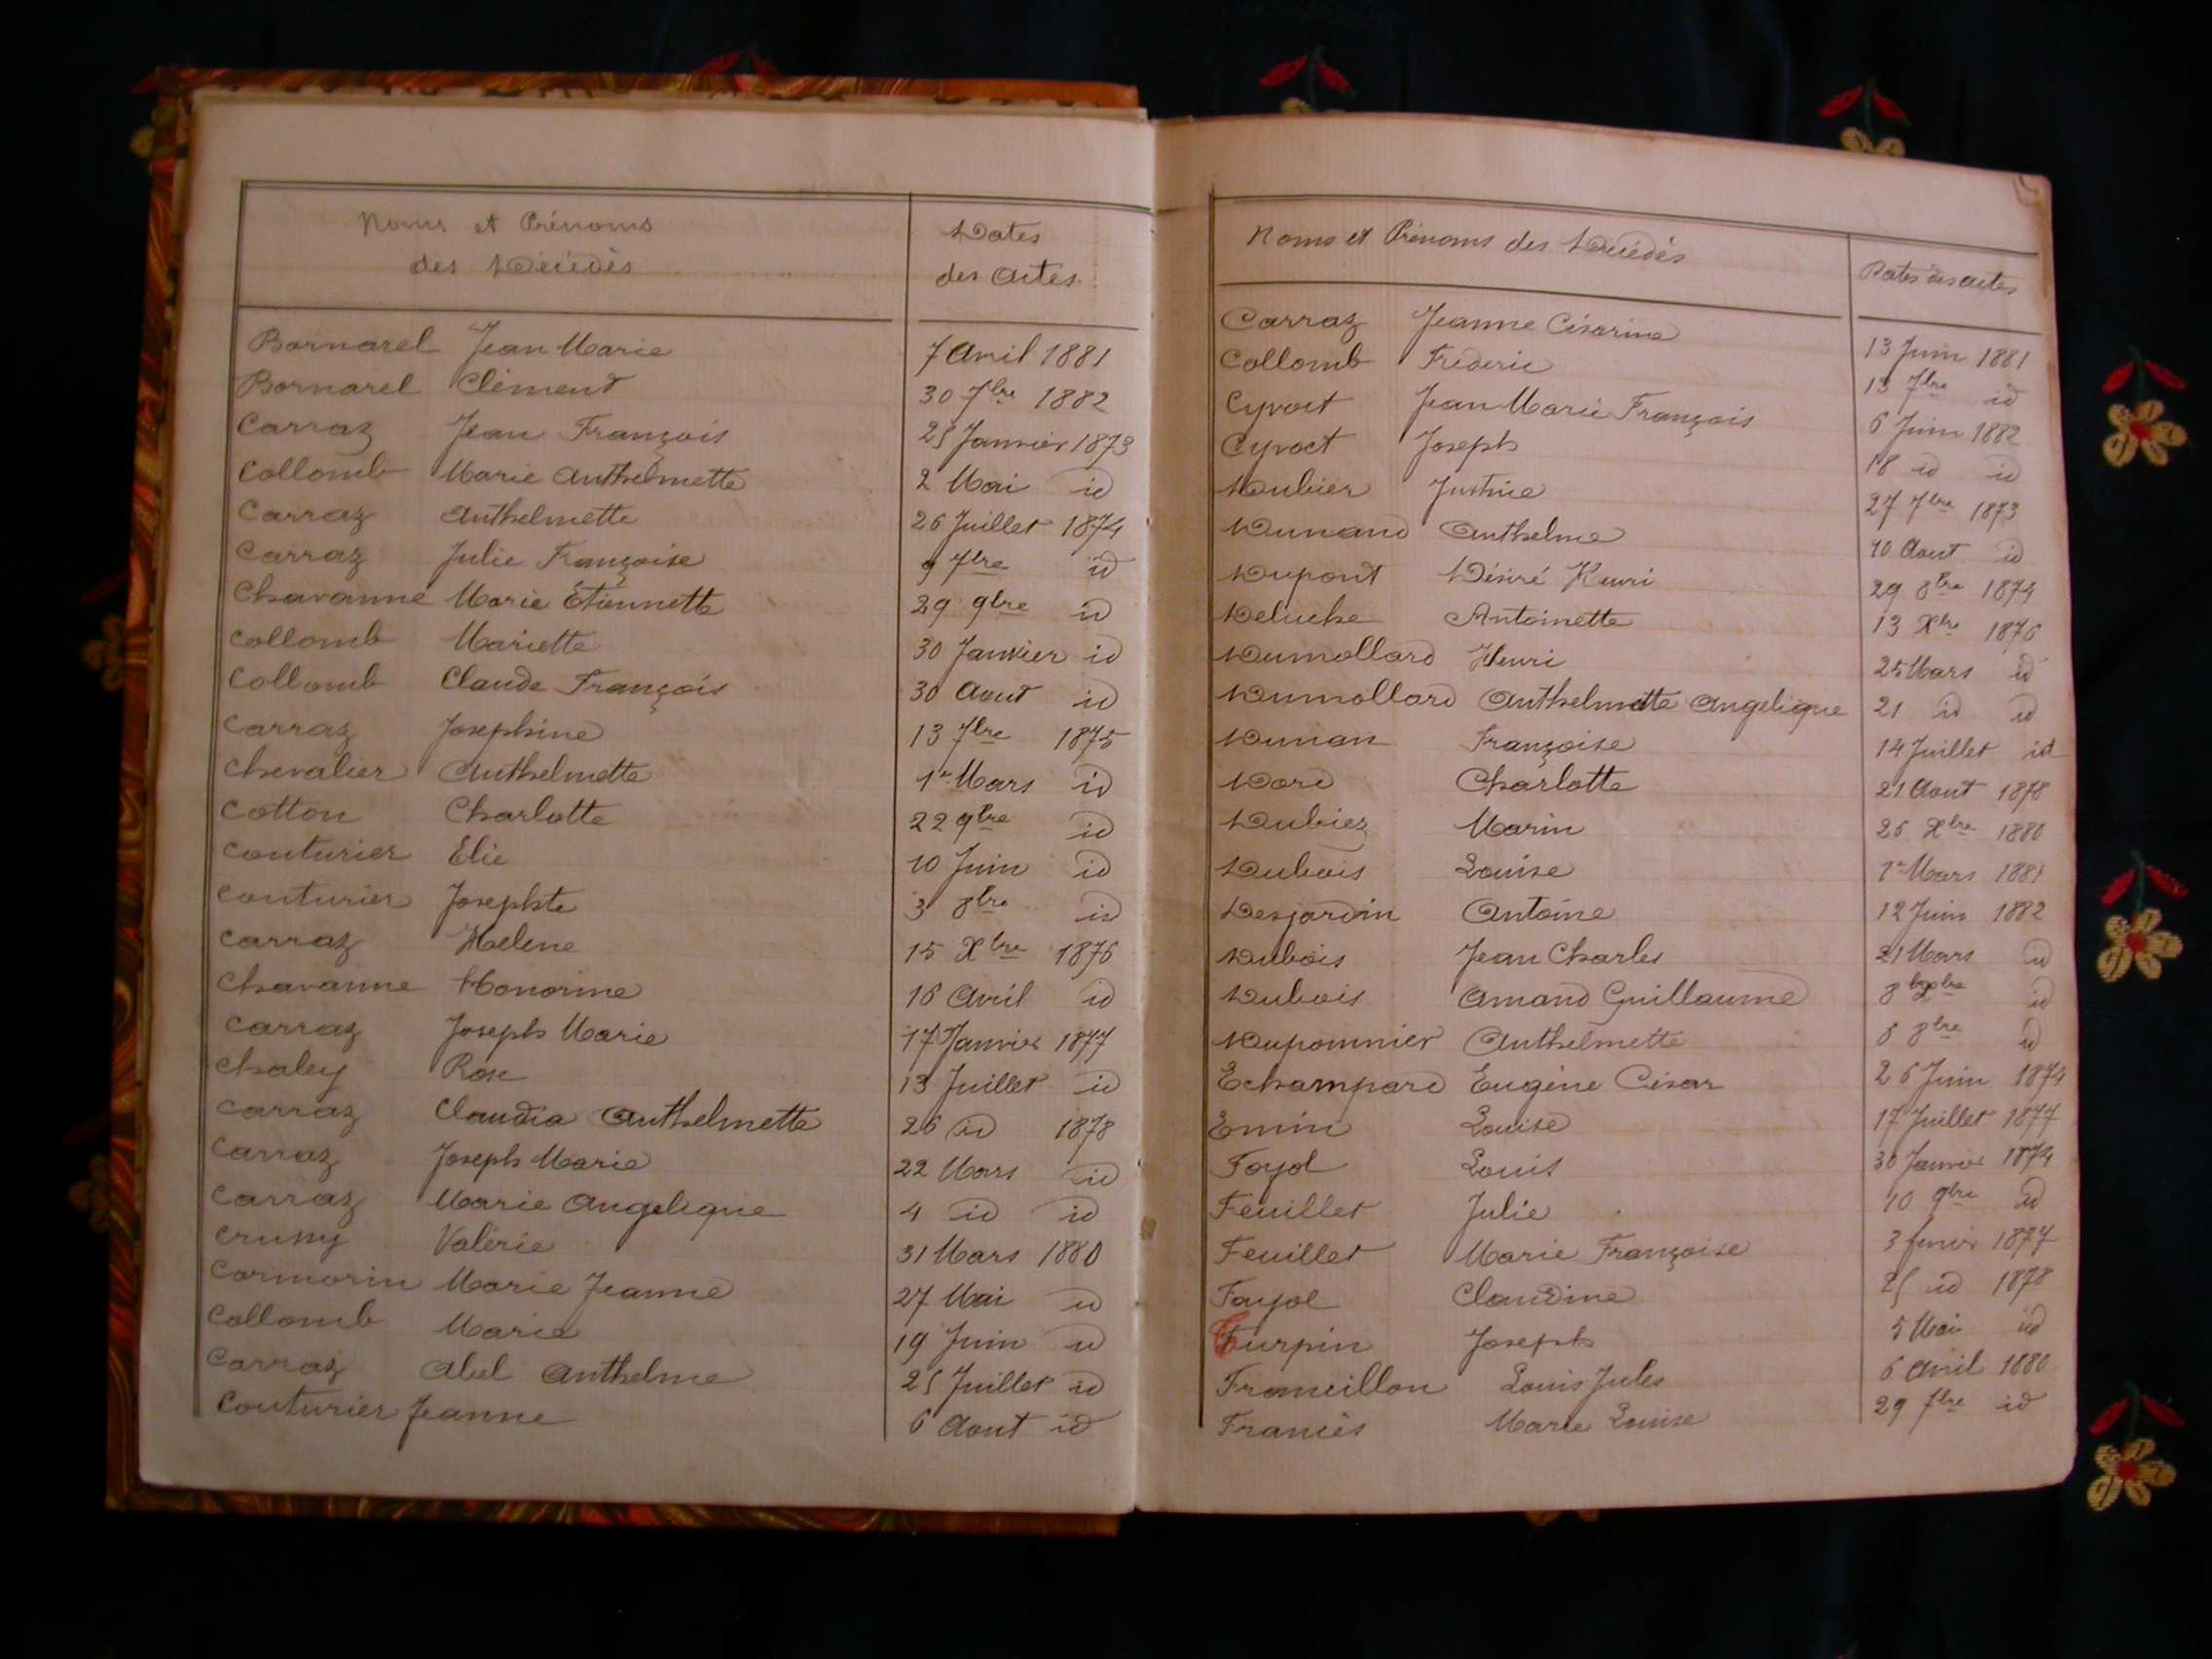 Noms et Prénoms
des Décédés
Dates
des Actes.
Bornarel Jean Marie 7 Avril 1881
Bornarel Clément 30 7bre 1882
Carraz Jean François 25 Janvier 1873
Collomb Marie Anthelmette 2 Mai id
Carraz Anthelmette 26 Juillet 1874
Carraz Julie Françoise 9 7bre id
Chavanne Marie Étiennette 29 9bre id
Collomb Mariette 30 Janvier id
Collomb Claude François 30 Aout id
Carraz Josephine 13 7bre 1875
Chevalier Anthelmette 1er Mars id
Cotton Charlotte 22 9bre id
Couturier Elie 10 Juin id
Couturier Josephte 3 8bre id
Carraz Helene 15 Xbre 1876
Chavanne Honorine 16 Avril id
Carraz Joseph Marie 17 Janvier 1877
Chaley Rose 13 Juillet id
Carraz Claudia Anthelmette 26 id 1878
Carraz Joseph Marie 22 Mars id
Carraz Marie Angelique 4 id id
Crussy Valérie 31 Mars 1880
Cormorin Marie Jeanne 27 Mai id
Collomb Marie 19 Juin id
Carraz Abel Anthelme 25 Juillet id
Couturier Jeanne 6 Aout id
Noms et Prénoms des Décédés Dates des actes
Carraz Jeanne Césarine 13 Juin 1881
Collomb Frederic 13 7bre id
Cyvoct Jean Marie François 6 Juin 1882
Cyvoct Joseph 18 id id
Dubier Justine 27 7bre 1873
Dunand Anthelme 10 Aout id
Dupont Désiré Henri 29 8bre 1874
Deluche Antoinette 13 Xbre 1876
Dumollard Henri 25 Mars id
Dumollard Anthelmette Angelique 21 id id
Dunan Françoise 14 Juillet id
Dord Charlotte 21 Aout 1878
Dubiez Marin 26 Xbre 1880
Dubois Louise 1er Mars 1881
Desjardin Antoine 12 Juin 1882
Dubois Jean Charles 21 Mars id
Dubois Amand Guillaume 8 id
Dupommier Anthelmette 8 8bre id
Echampard Eugène César 26 Juin 1874
Emin Louise 17 Juillet 1877
Fayol Louis 30 Janvier 1874
Feuillet Julie 10 9bre id
Feuillet Marie Françoise 3 fevrier 1877
Fayol Claudine 25 id 1878
Turpin Joseph 5 Mai id
Francillon Louis Jules 6 Avril 1880
Francès Marie Louise 29 7bre id